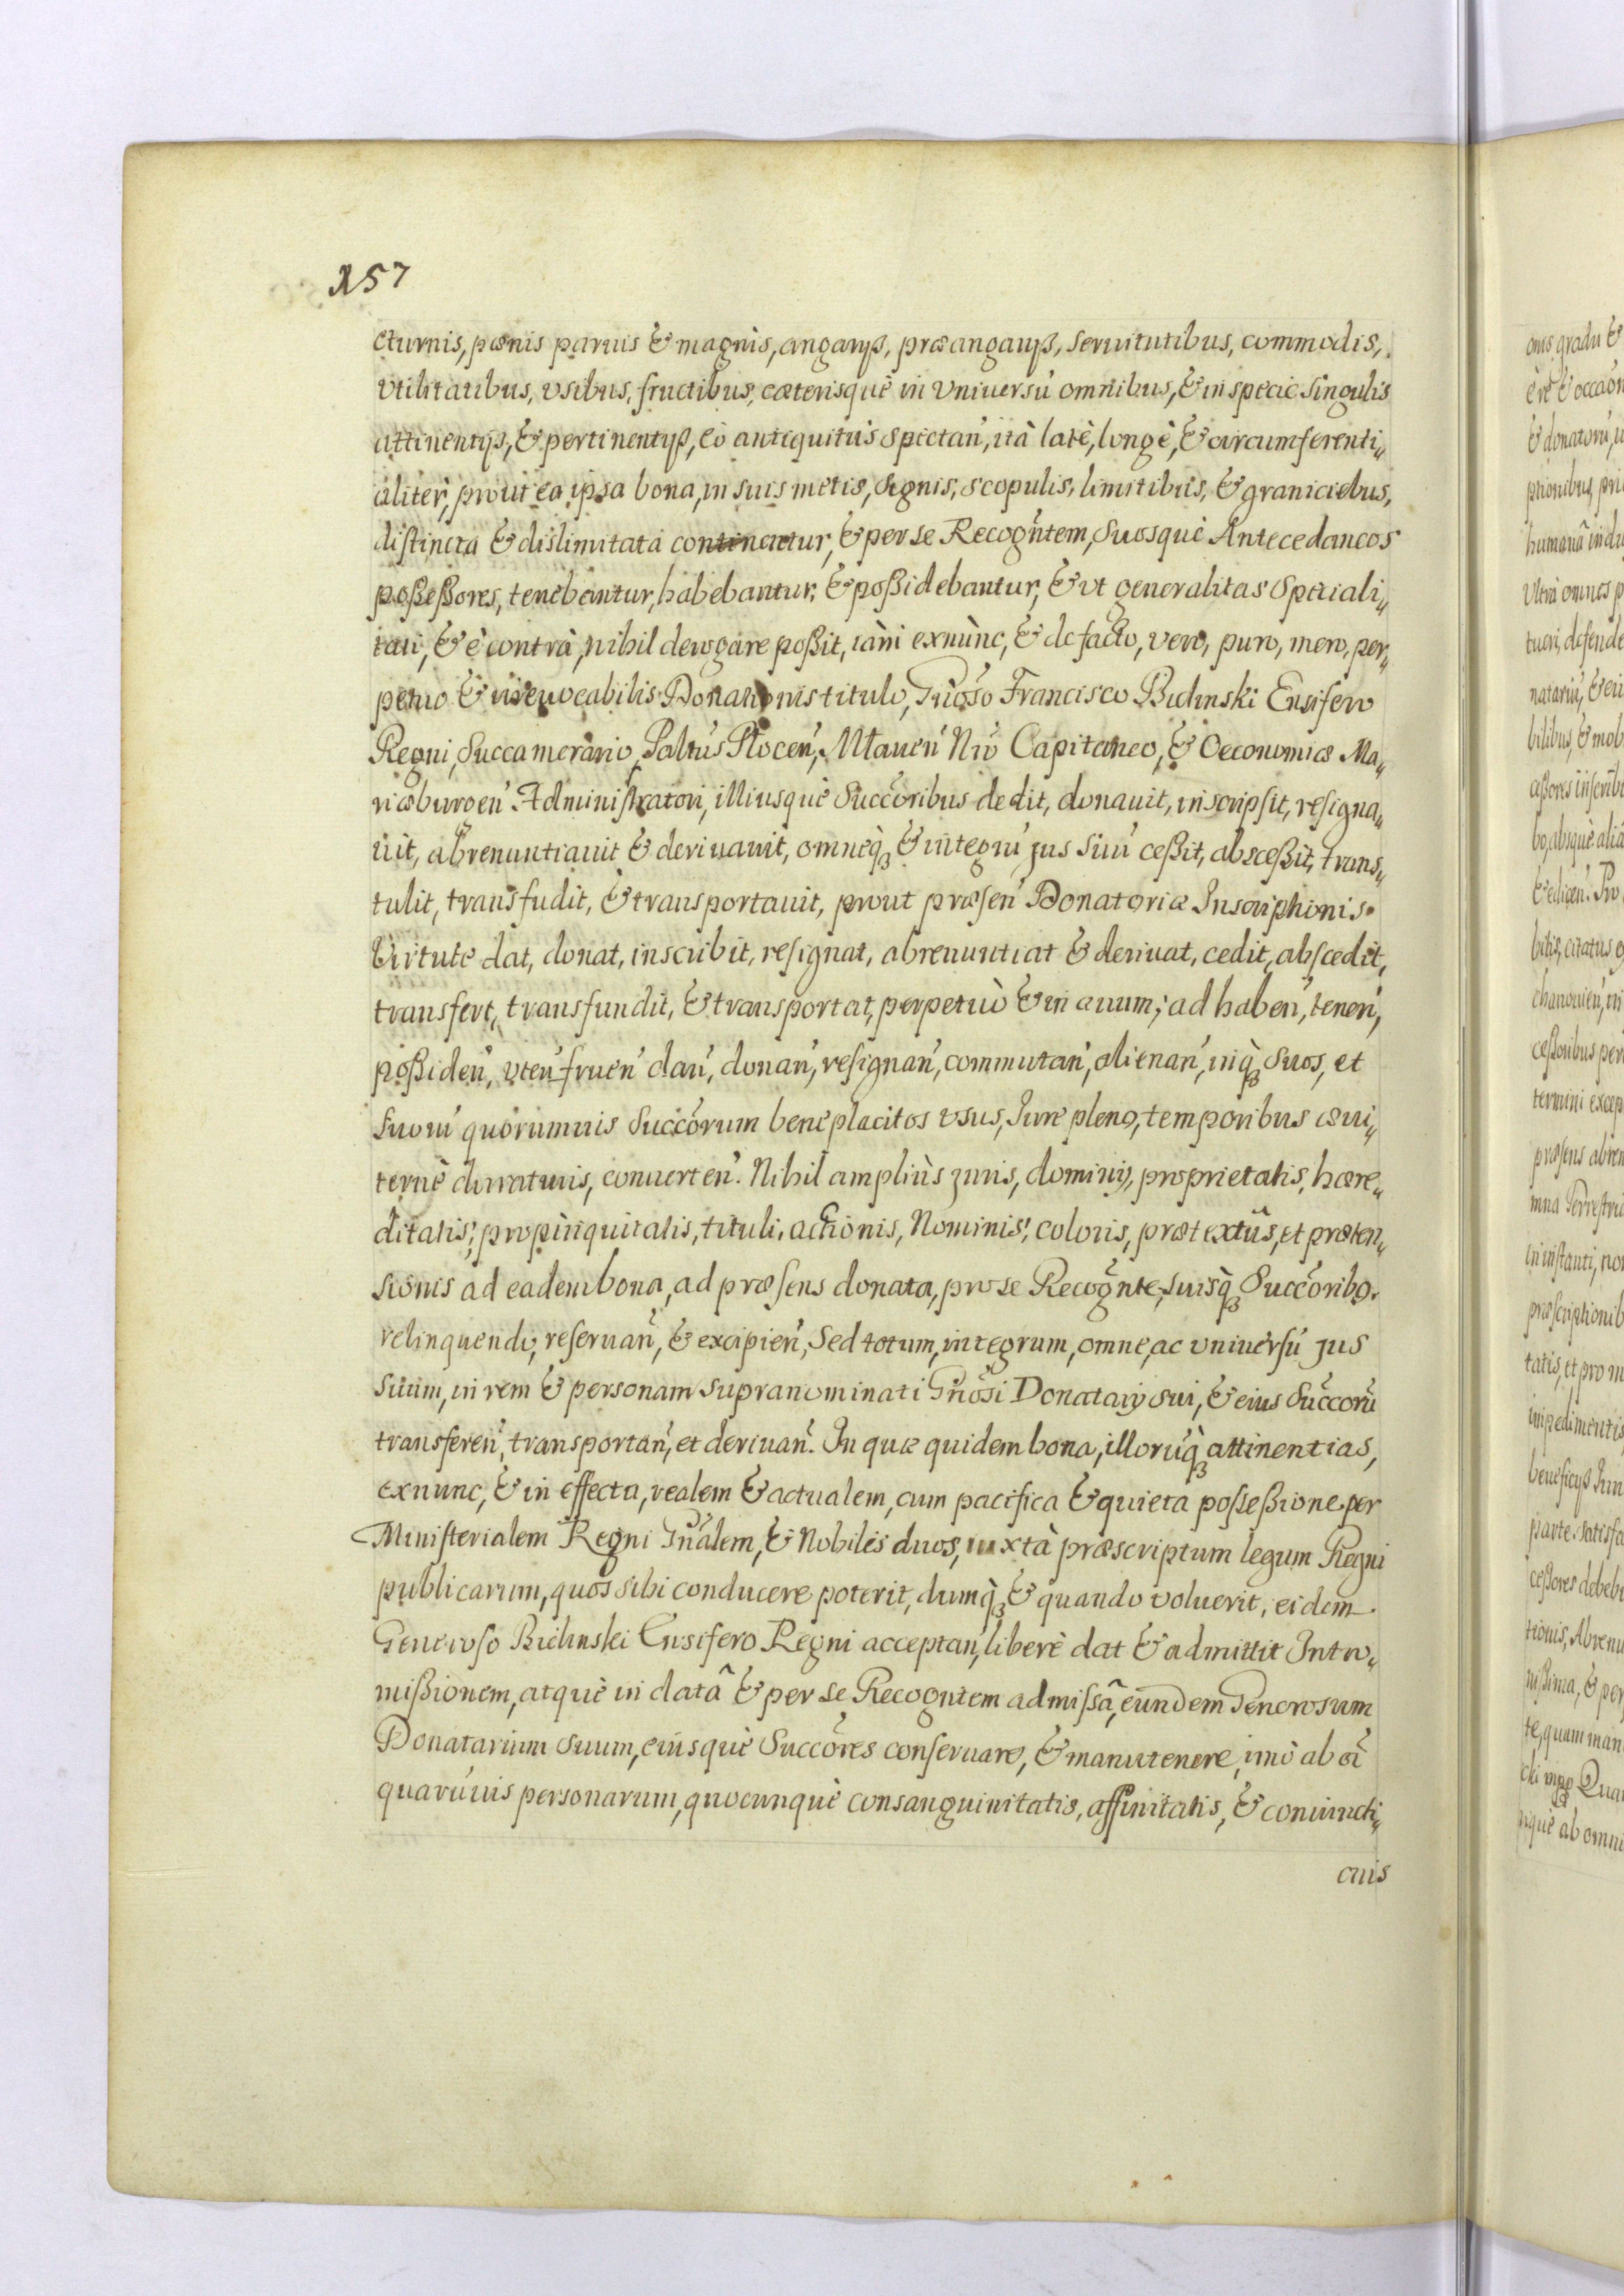 157
cturnis, pœnis paruis & magnis, angarijs, præangarijs, seruitutibus, commodis,
vtilitatibus, vsibus, fructibus, cæterisquè in vniuersú omnibus, & in specie singulis
attinentijs, & pertinentijs, eò antiquitùs spectan̄, ità latè, longè, & circumferenti„
alitèr, prout ea ipsa bona, in suis metis, signis, scopulis, limitibus, & graniciebus,
distincta & dislimitata continentur, & per se Recogn̄tem, suosquè Antecedaneos
possessores, tenebantur, habebantur, & possidebantur, & vt generalitas speciali„
tati, & è contrà, nihil derogare possit, iàm exnùnc, & de facto, vero, puro, mero, per„
petuo & irreuocabilis Donationis titulo, Gnōso Francisco Bielinski Ensifero
Regni, Succamerario Paltūs Plocen̄, Mlauen̄ Nrō Capitaneo, & Oeconomiæ Ma„
riæburgen̄ Administratori, illiusquè Succōribus dedit, donauit, inscripsit, resigna„
uit, abrenuntiauit & deriuauit, omneq̀ & integrú jus suú cessit, abscessit, trans„
tulit, transfudit, & transportauit, prout præsen̄ Donatoriæ Inscriptionis
Virtute dat, donat, inscribit, resignat, abrenuntiat & deriuat, cedit, abscedit,
transfert, transfundit, & transportat, perpetuò & in æuum; ad haben̄, tenen̄,
possiden̄, vten̄ fruen̄ dan̄, donan̄, resignan̄, commutan̄, alienan̄, inq̀ suos, et
suorú quorumuis Succōrum beneplacitos vsus, Jure pleno, temporibus æui„
ternè duraturis, conuerten̄. Nihil ampliùs juris, dominij, proprietatis, hære„
ditatis, propinquitatis, tituli, actionis, Nominis, coloris, prætextûs, et præten„
sionis ad eadem bona, ad præsens donata, pro se Recogn̄te, suisq̀ Succōribq.
relinquendo, reseruan̄, & excipien̄, Sed totum, integrum, omne, ac vniuersú jus
suum, in rem & personam supranominati Gnōsi Donatarij sui, & eius Succorū
transferen̄, transportan̄, et deriuan̄. In quæ quidem bona, illorúq̀ attinentias,
exnunc, & in effecta, realem & actualem, cum pacifica & quieta possessione per
Ministerialem Regni Gnālem, & Nobiles duos, iuxtà præscriptum legum Regni
publicarum, quos sibi conducere poterit, dumq̀ & quando voluerit, eidem
Generoso Bielinski Ensifero Regni acceptan̄, liberè dat & admittit Intro„
missionem, atquè in datâ & per se Recogntem admissâ, eundem Generosum
Donatarium suum, eiusquè Succōres conseruare, & manutenere, imò ab oī
quarúuis personarum, quocunquè consanguinitatis, affinitatis, & coniuncti„